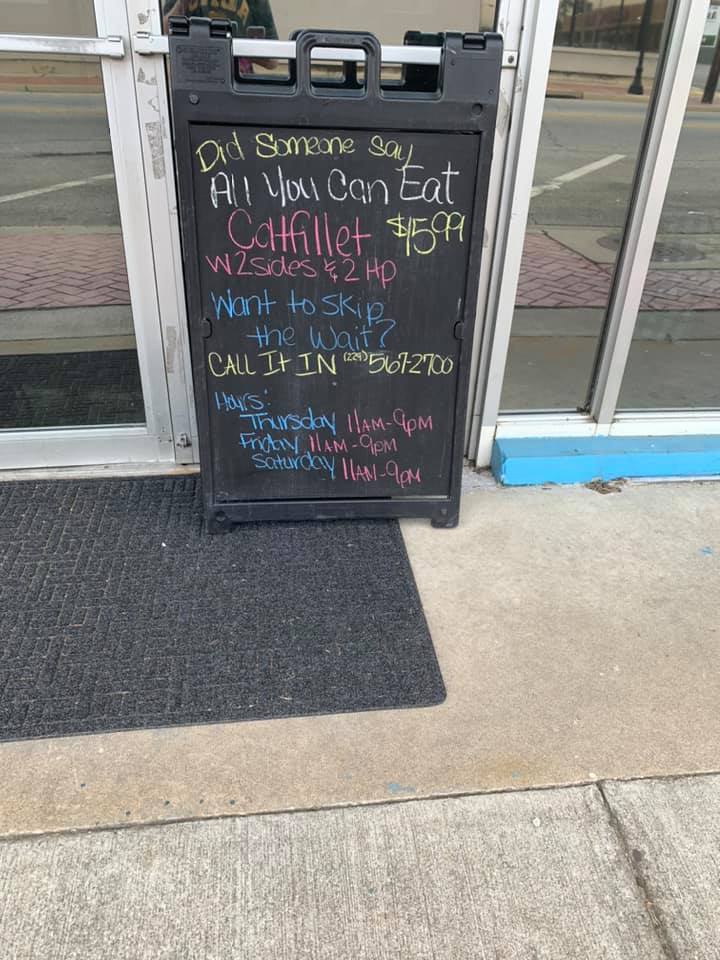 Did Someone Say
All You Can Eat
Catfillet $15.99
W2sides & 2 Hp
Want to Skip
the Wait?
CALL It IN (229) 567-2700
Hours:
Thursday 11AM-9PM
Friday 11AM-9PM
Saturday 11AM-9PM